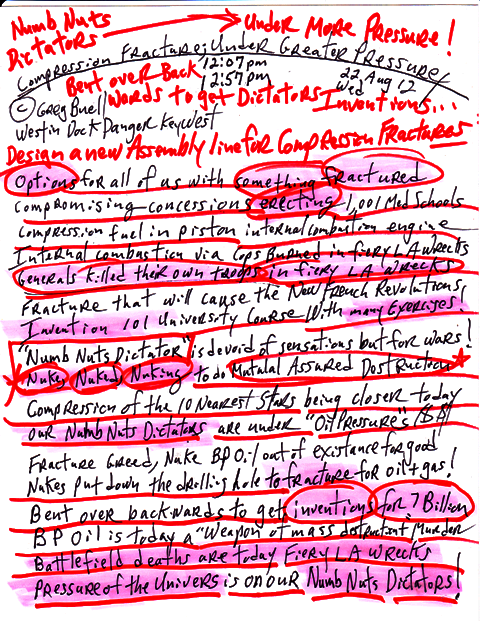 Numb Nuts
Dictators → Under More Pressure!
Compression Fracture; Under Greater Pressure/
12:07pm
12:57pm
22 Aug 12
Wed
Bent over Back
words to get Dictators Inventions...
© Greg Buell
Westin Dock Danger Key West
Design a new Assembly line for Compression Fractures:
Options for all of us with something fractured
compromising concessions erecting 1,001 Med Schools
Compression fuel in piston internal combustion engine
Internal combastion via Cops Burned in fiery LA Wrecks
Generals killed their own troops in fiery LA wrecks
Fracture that will cause the New French Revolution,
Invention 101 University Course With many Exercises!
"Numb Nuts Dictator" is devoid of sensations but for wars!
Nuke, Nuked, Nuking to do Mutalal Assured Dostruction
Compression of the 10 Nearest Stars being closer today
our Numb Nuts Dictators are under "Oil Pressure's ($A)
Fracture Greed, Nuke BP Oil out of existance for good
Nukes put down the drilling hole to fracture for oil + gas!
Bent over backwards to get inventions for 7 Billion
BP Oil is today a "Weapon of mass destruction", Murder
Battlefield deaths are today Fiery LA Wrecks
Pressure of the Univers is on our Numb Nuts Dictators!